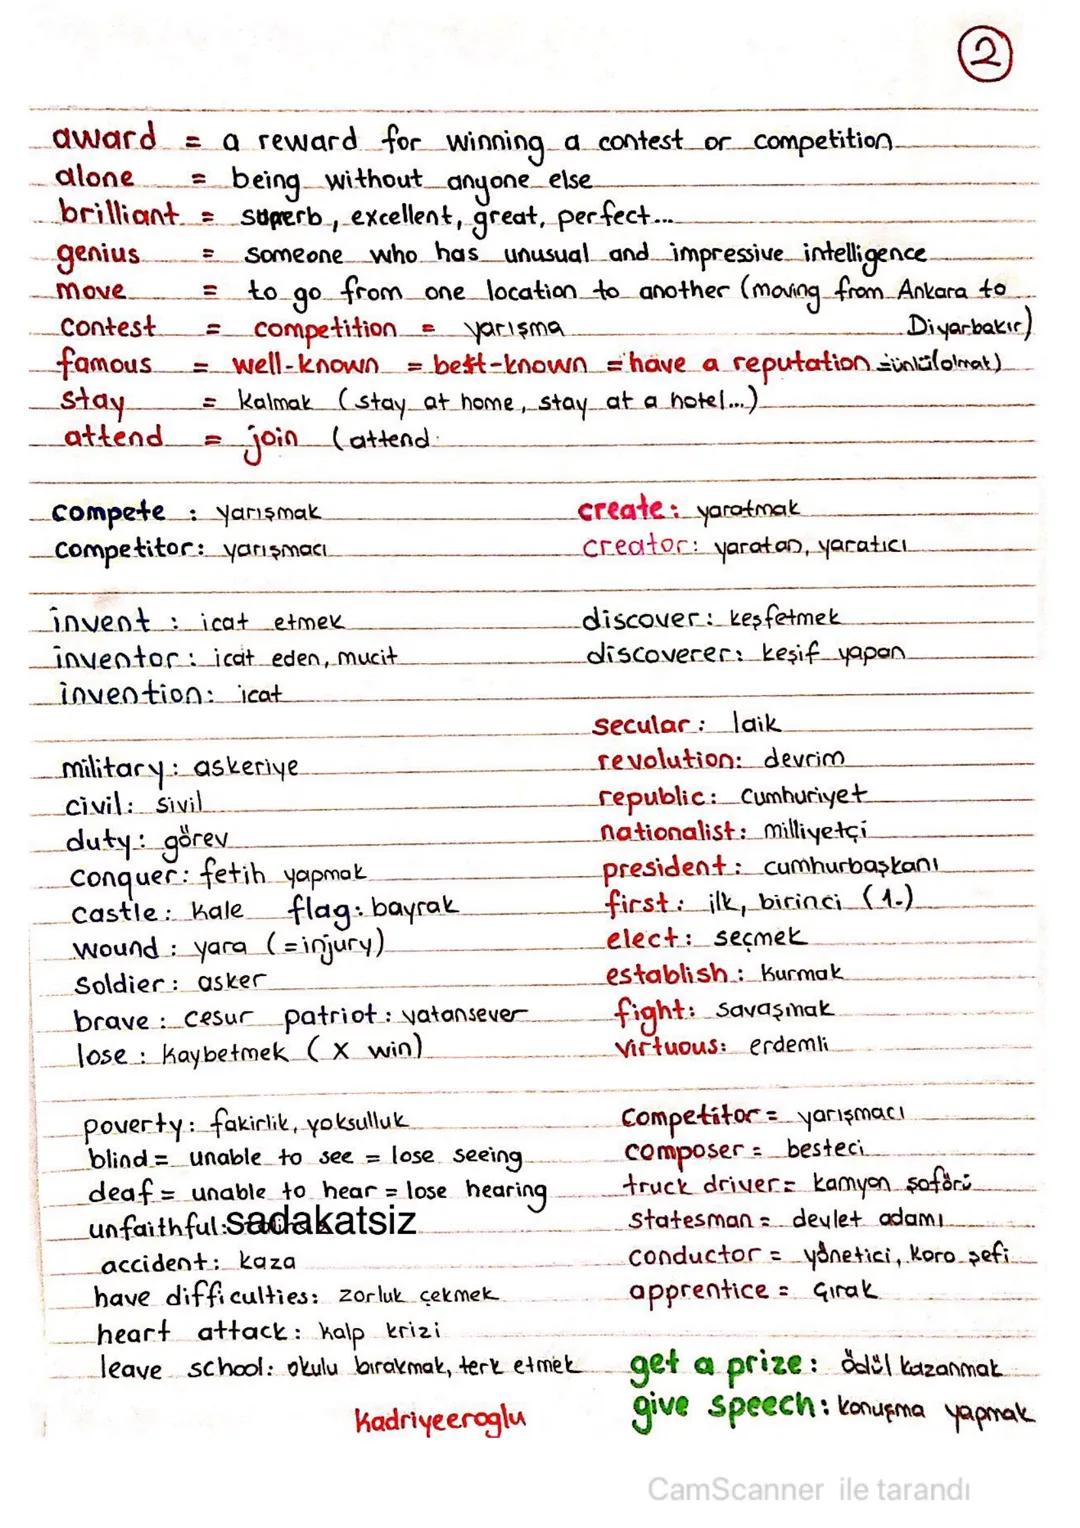 2
award = a reward for winning a contest or competition
alone = being without anyone else
brilliant = superb, excellent, great, perfect...
genius = someone who has unusual and impressive intelligence
move = to go from one location to another (moving from Ankara to Diyarbakır)
contest = competition = yarışma
famous = well-known = best-known = have a reputation = ünlü(olmak)
stay = kalmak (stay at home, stay at a hotel...)
attend = join (attend
compete : yarışmak
create : yaratmak
competitor : yarışmacı
creator : yaratan, yaratıcı
invent : icat etmek
discover : keşfetmek
inventor : icat eden, mucit
discoverer : keşif yapan
invention : icat
secular : laik
military : askeriye
revolution : devrim
civil : sivil
republic : Cumhuriyet
duty : görev
nationalist : milliyetçi
conquer : fetih yapmak
president : cumhurbaşkanı
castle : kale flag : bayrak
first : ilk, birinci (1.)
wound : yara (=injury)
elect : seçmek
soldier : asker
establish : kurmak
brave : cesur patriot : vatansever
fight : savaşmak
lose : kaybetmek (X win)
virtuous : erdemli
poverty : fakirlik, yoksulluk
competitor = yarışmacı
blind = unable to see = lose seeing
composer = besteci
deaf = unable to hear = lose hearing
truck driver = kamyon şoförü
unfaithful : sadakatsiz
statesman = devlet adamı
accident : kaza
conductor = yönetici, koro şefi
have difficulties : zorluk çekmek
apprentice = çırak
heart attack : kalp krizi
leave school : okulu bırakmak, terk etmek
get a prize : ödül kazanmak
give speech : konuşma yapmak
kadriyeeroglu
CamScanner ile tarandı